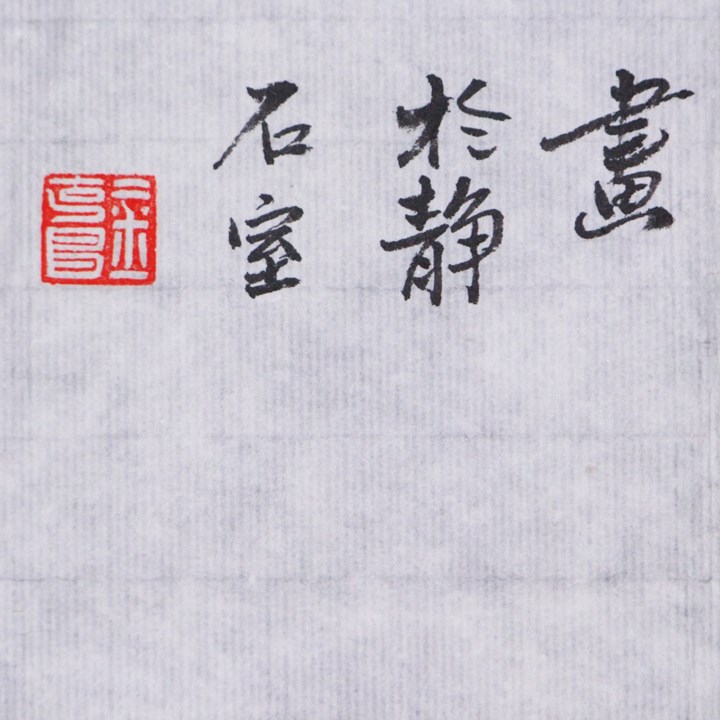 畫
於静
石室